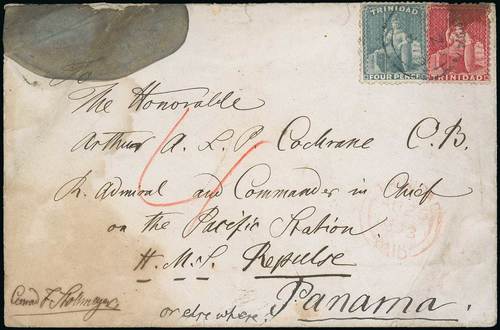 TRINIDAD
FOUR PENCE
TRINIDAD
To
The Honorable
Arthur A. L. P. Cochrane C.B.
R. Admiral and Commander in Chief
on the Pacific Station
H.M.S. Repulse
Panama.
or elsewhere.
Conrad F Stollmeyer
PAID